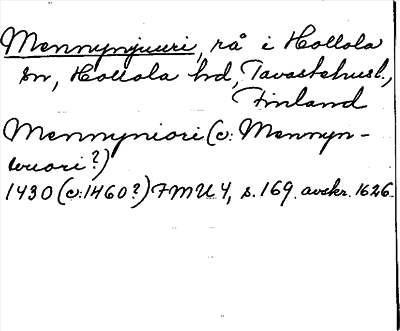 Mennynjuuri, rå i Hollola
sn, Hollola hd, Tavastehusl.,
Finland
Mennyniori (v: Mennyn-
wuori?)
1430 (v: 1460?) FMU 4, s. 169. avskr. 1626.